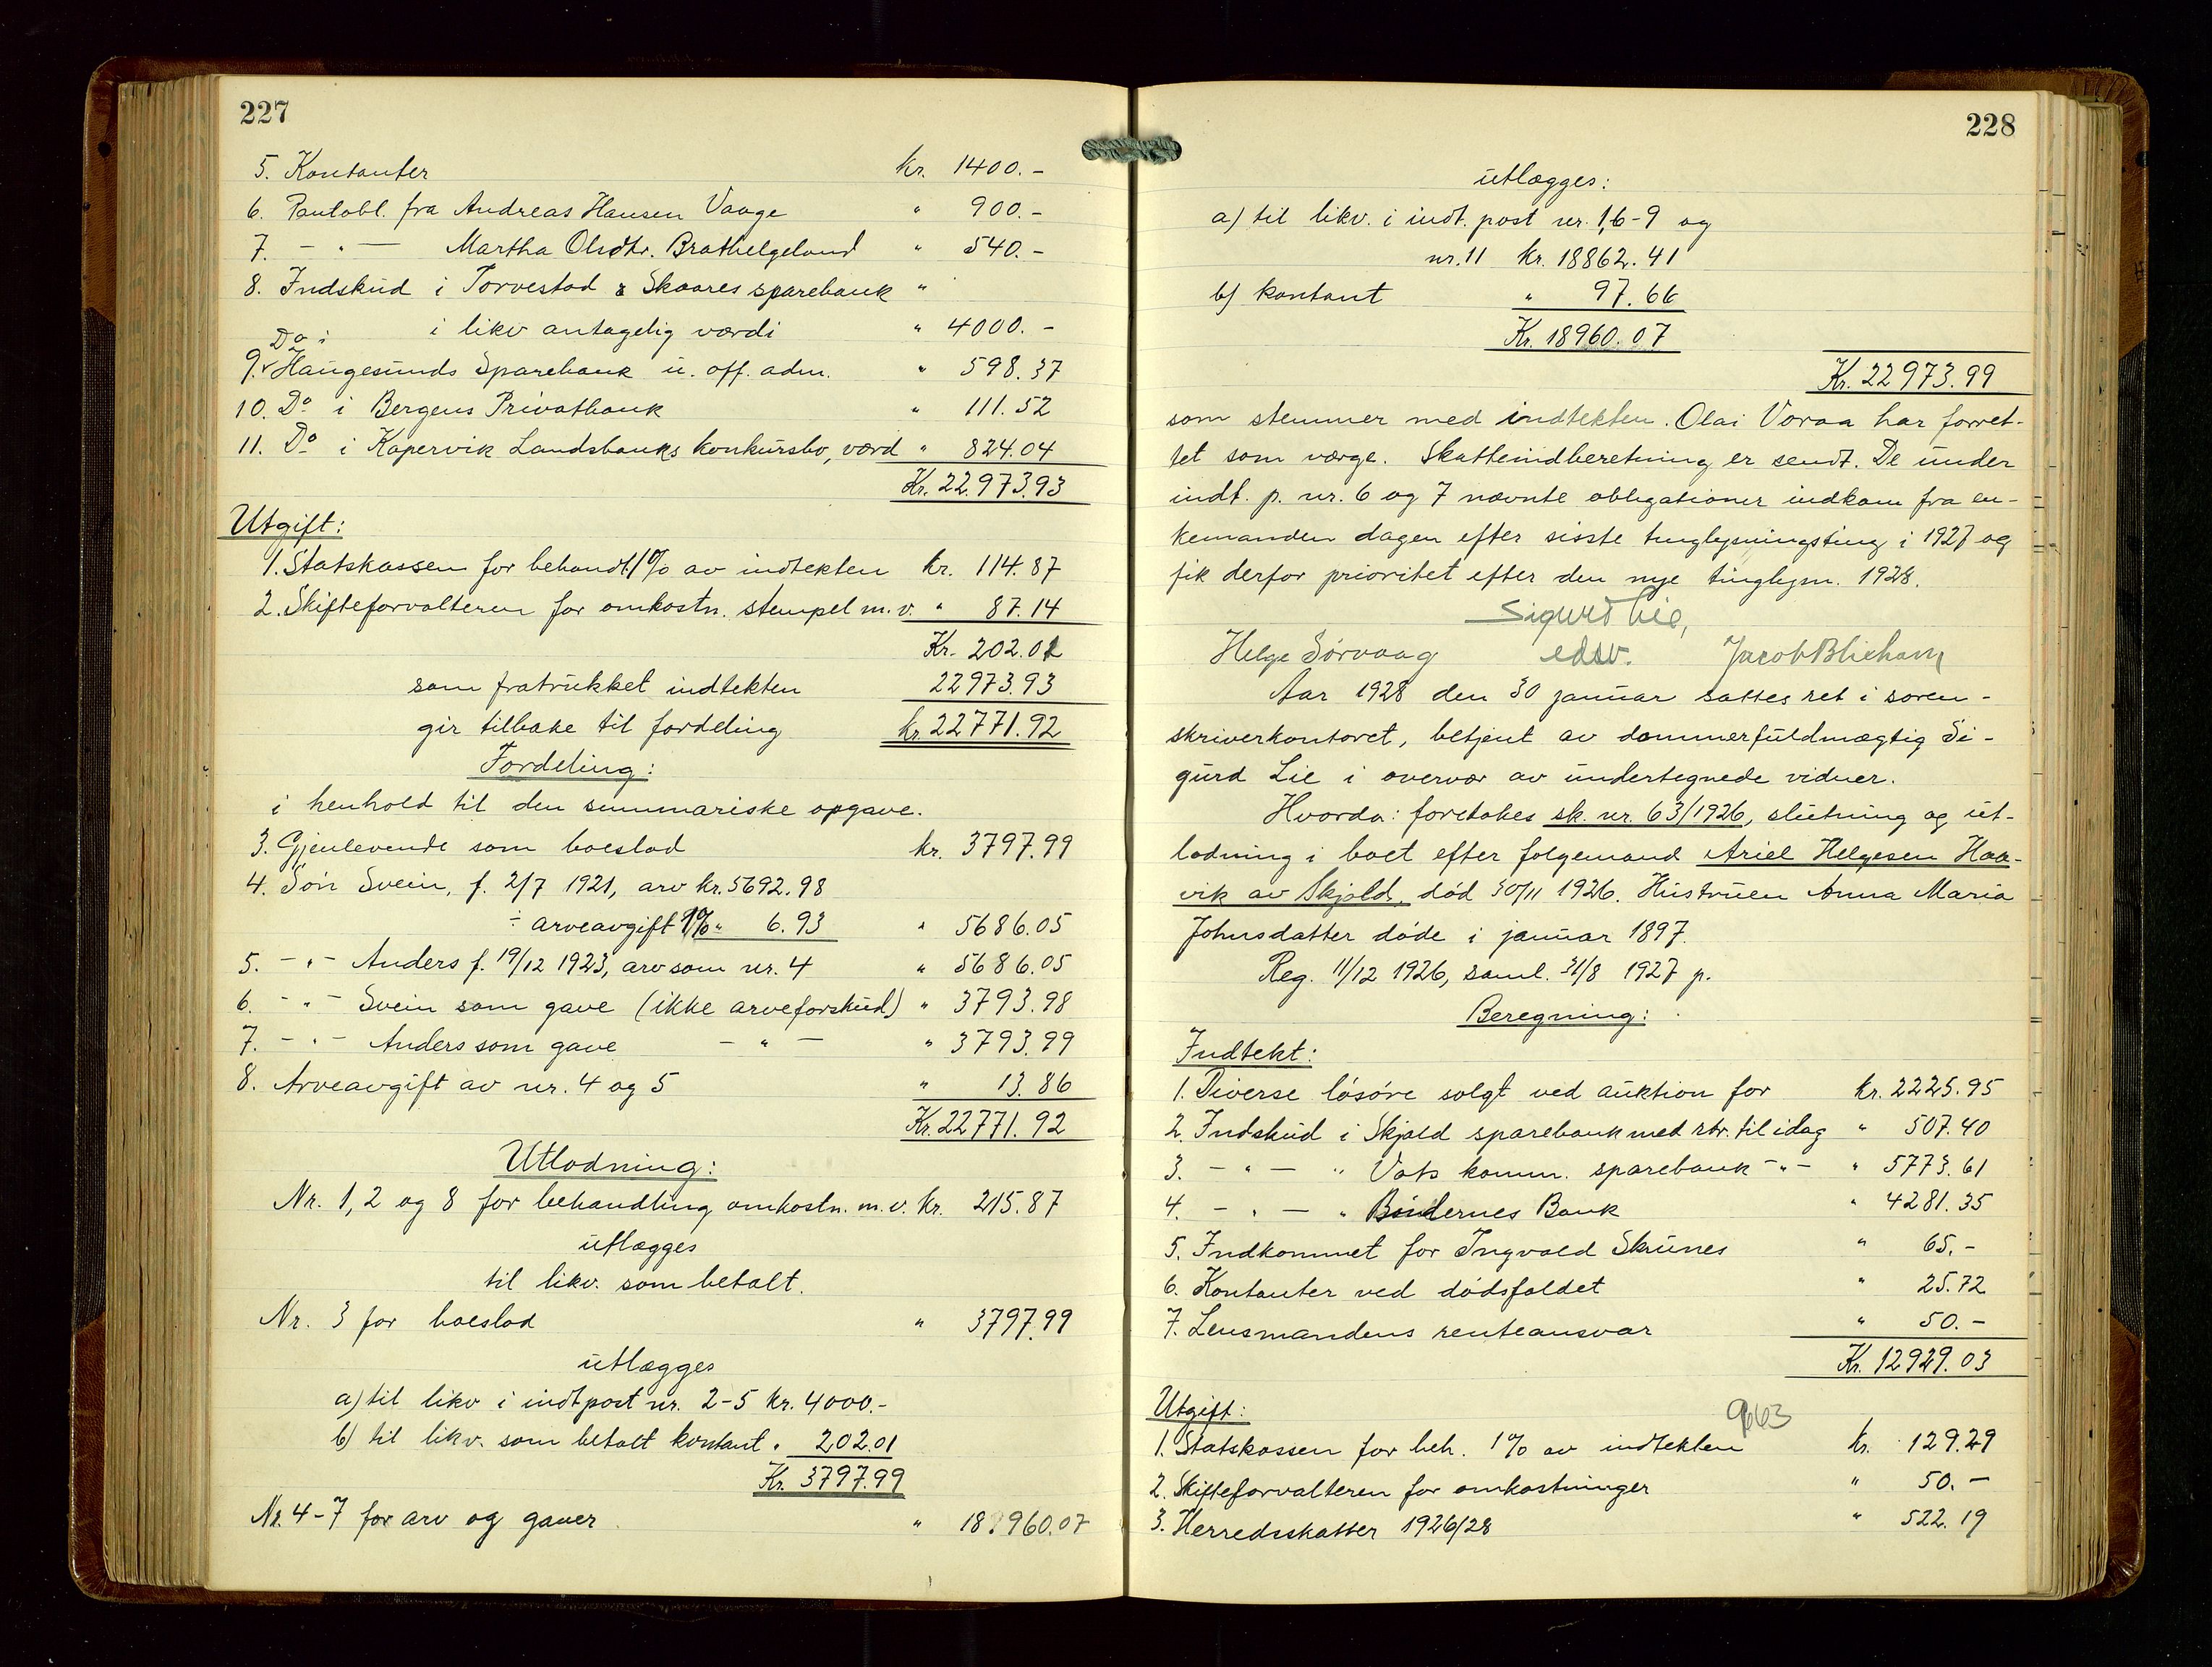 227
5. Kontanter kr. 1400.-
6. Pantobl. fra Andreas Hansen Vaage " 900.-
7. - " - Martha Olsdtr. Brathelgeland " 540.-
8. Indskud i Torvestad & Skaares sparebank "
i likv antagelig værdi " 4000.-
Do i
9. Haugesunds Sparebank u. off. adm. " 598.37
10. Do i Bergens Privatbank " 111.52
11. Do i Kopervik Landsbanks konkursbo, værd " 824.04
Kr. 22.973.93
Utgift:
1. Statskassen for behandl. 1% av indtekten kr. 114.87
2. Skifteforvalteren for omkostn. stempel m.v. " 87.14
Kr. 202.01
som fratrukket indtekten 22973.93
gir tilbake til fordeling kr. 22771.92
Fordeling:
i henhold til den summariske opgave.
3. Gjenlevende som boeslod kr. 3797.99
4. Søn Svein, f. 2/7 1921, arv kr. 5692.98
÷ arveavgift 1% " 6.93 " 5686.05
5. - " - Anders f. 19/12 1923, arv som nr. 4 " 5686.05
6. - " - Svein som gave (ikke arveforskud) " 3793.98
7. - " - Anders som gave - " - " 3793.99
8. Arveavgift av nr. 4 og 5 " 13.86
Kr. 22771.92
Utlodning:
Nr. 1, 2 og 8 for behandling omkostn. m.v. kr. 215.87
utlægges
til likv. som betalt.
Nr. 3 for boeslod " 3797.99
utlægges
a) til likv i indt post nr. 2-5 kr. 4000.-
b) til likv. som betalt kontant " 202.01
Kr. 3797.99
Nr. 4-7 for arv og gaver " 18960.07
228
utlægges:
a) til likv. i indt. post nr. 1,6-9 og
nr. 11 kr. 18862.41
b) kontant " 97.66
Kr. 18960.07
Kr. 22973.99
som stemmer med indtekten. Olai Voraa har forret-
tet som værge. Skatteindberetning er sendt. De under
indt. p. nr. 6 og 7 nævnte obligationer indkom fra en-
kemanden dagen efter sisste tinglysningsting i 1927 og
fik derfor prioritet efter den nye tinglysn. 1928.
Sigurd Lie,
Helge Sørvaag edsv. Jacob Blikham
Aar 1928 den 30 januar sattes ret i soren-
skriverkontoret, betjent av dommerfuldmægtig Si-
gurd Lie i overvær av undertegnede vidner.
Hvorda: foretokes sk. nr. 63/1926, slutning og ut-
lodning i boet efter følgemand Ariel Helgesen Haa-
vik av Skjold, død 30/11 1926. Hustruen Anna Maria
Johnsdatter døde i januar 1897.
Reg. 11/12 1926, saml. 31/8 1927 p.
Beregning:
Indtekt:
1. Diverse løsøre solgt ved auktion for kr. 2225.95
2. Indskud i Skjold sparebank med rtr. til idag " 507.40
3. - " - " Vats komm. sparebank - " - " 5773.61
4. - " - " Bøndernes Bank " 4281.35
5. Indkommet for Ingvald Skrunes " 65.-
6. Kontanter ved dødsfaldet " 25.72
7. Lensmandens renteansvar " 50.-
Kr. 12929.03
Utgift:
963
1. Statskassen for beh. 1% av indtekten kr. 129.29
2. Skifteforvalteren for omkostninger " 50.-
3. Herredsskatter 1926/28 " 522.19